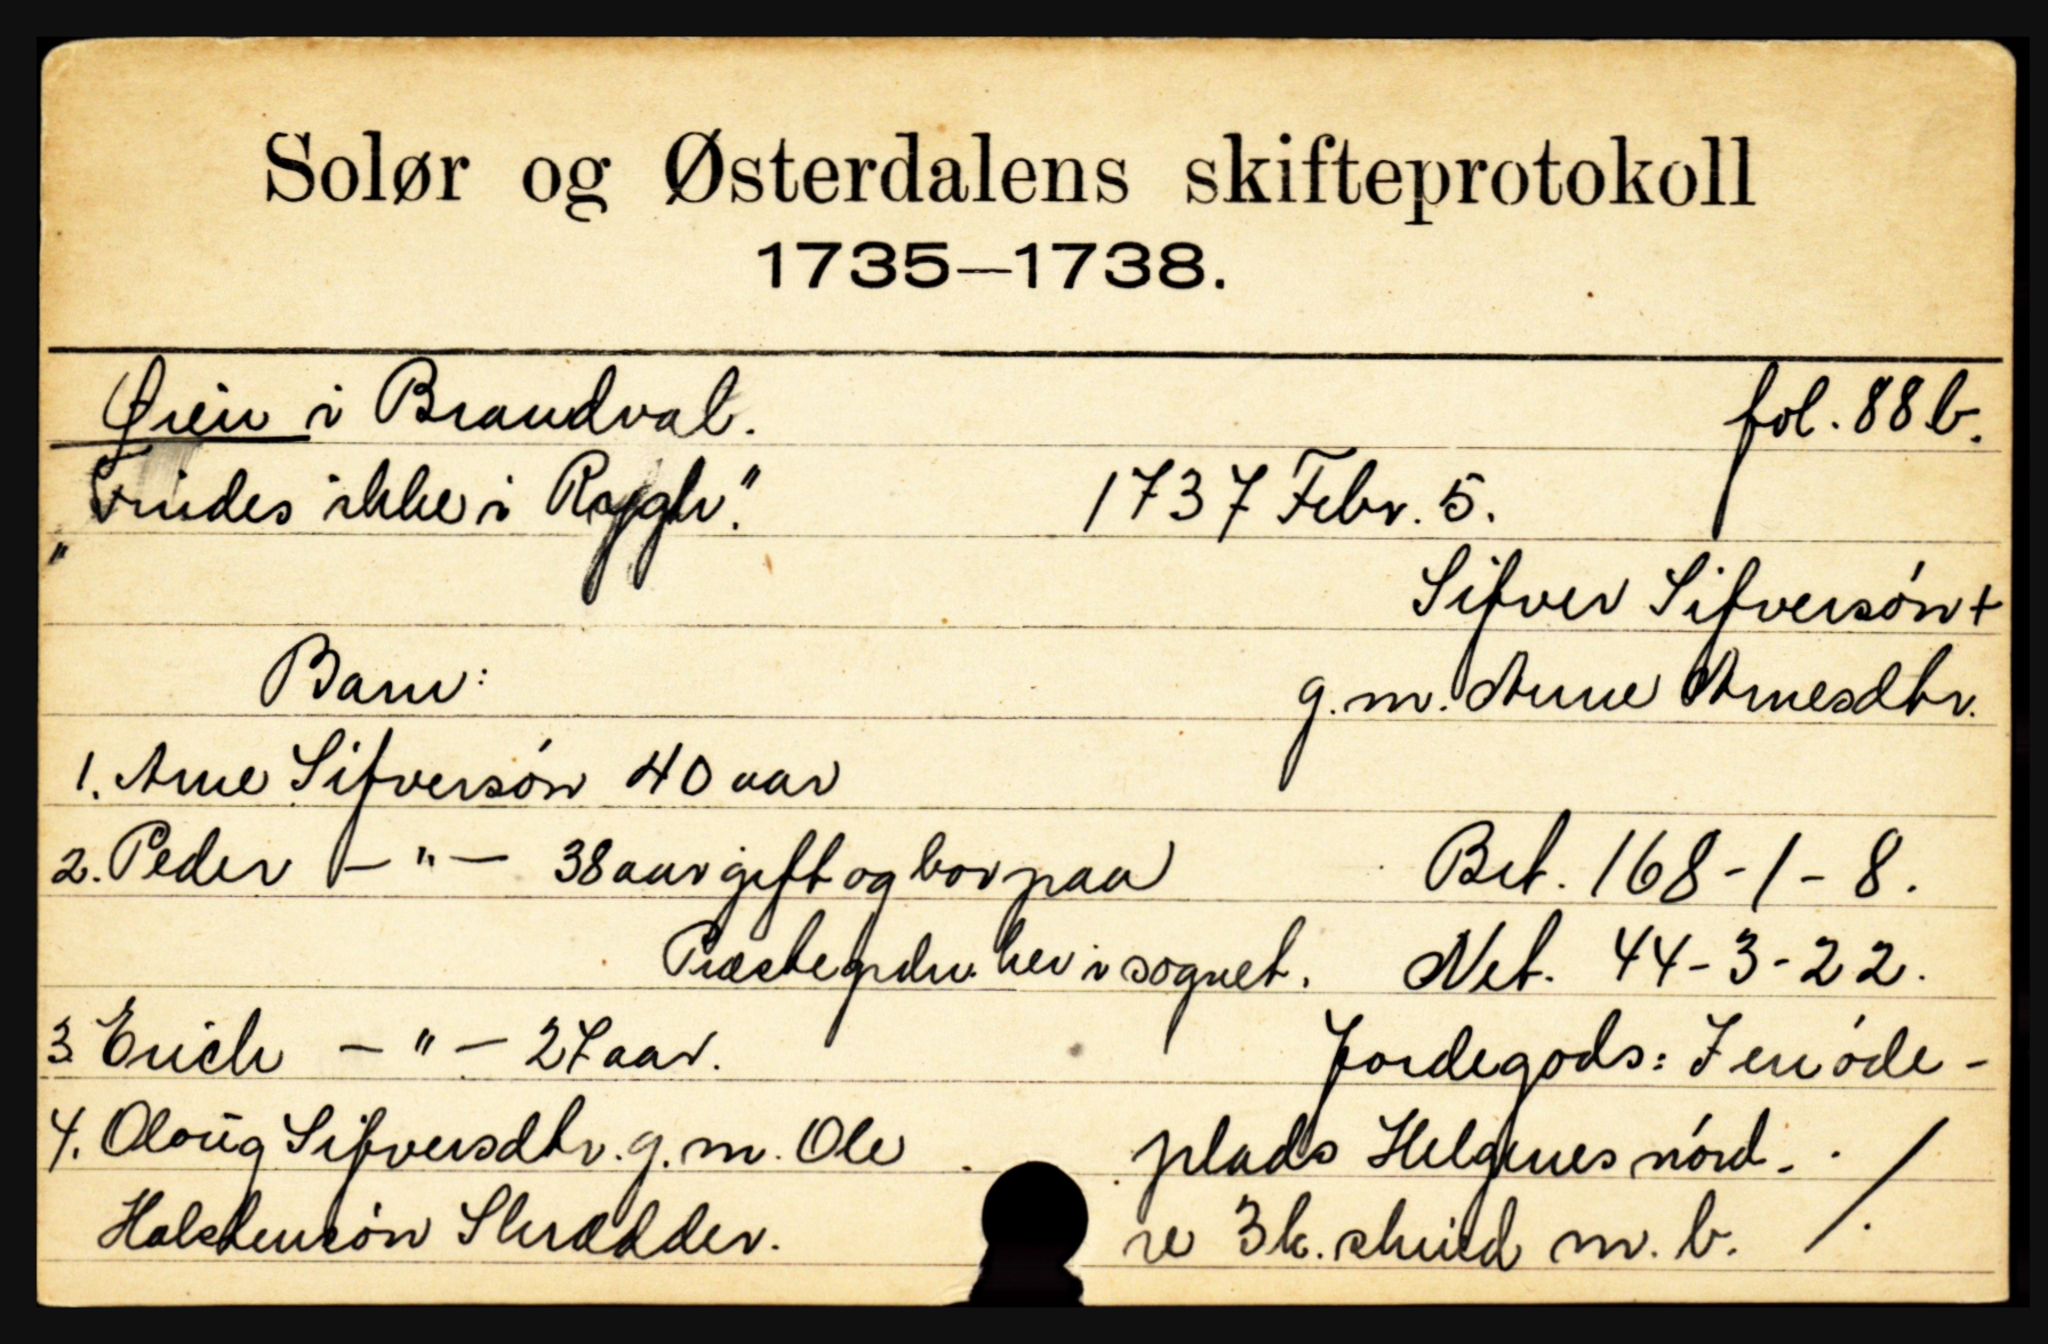 Solør og Østerdalens skifteprotokoll
1735—1738.
Øien i Brandval. fol. 88 b.
"Findes ikke i Rygh." 1737 Febr. 5.
Sifver Sifversón +
Barn: g.m. Anne Arnesdtr.
1. Arne Sifversón 40 aar
2. Peder — " — 38 aar gift og bor paa Brt. 168-1-8.
Præstegrdn. her i sognet. Net. 44-3-22.
3. Erich — " — 27 aar. Jordegods: I en óde-
4. Oloug Sifversdtr. g.m. Ole plads Helgenes nórd-
Halstensón Skrædder. re 3 k. skind m. b. /